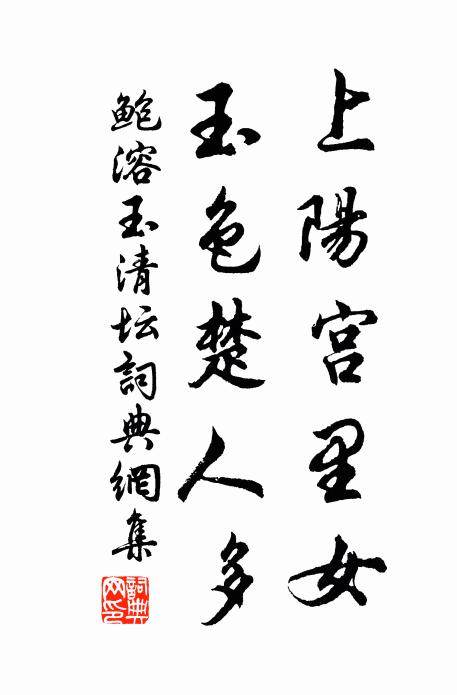 上陽宮里女
玉色楚人多
鲍溶玉清坛詞典網集
詞典網印